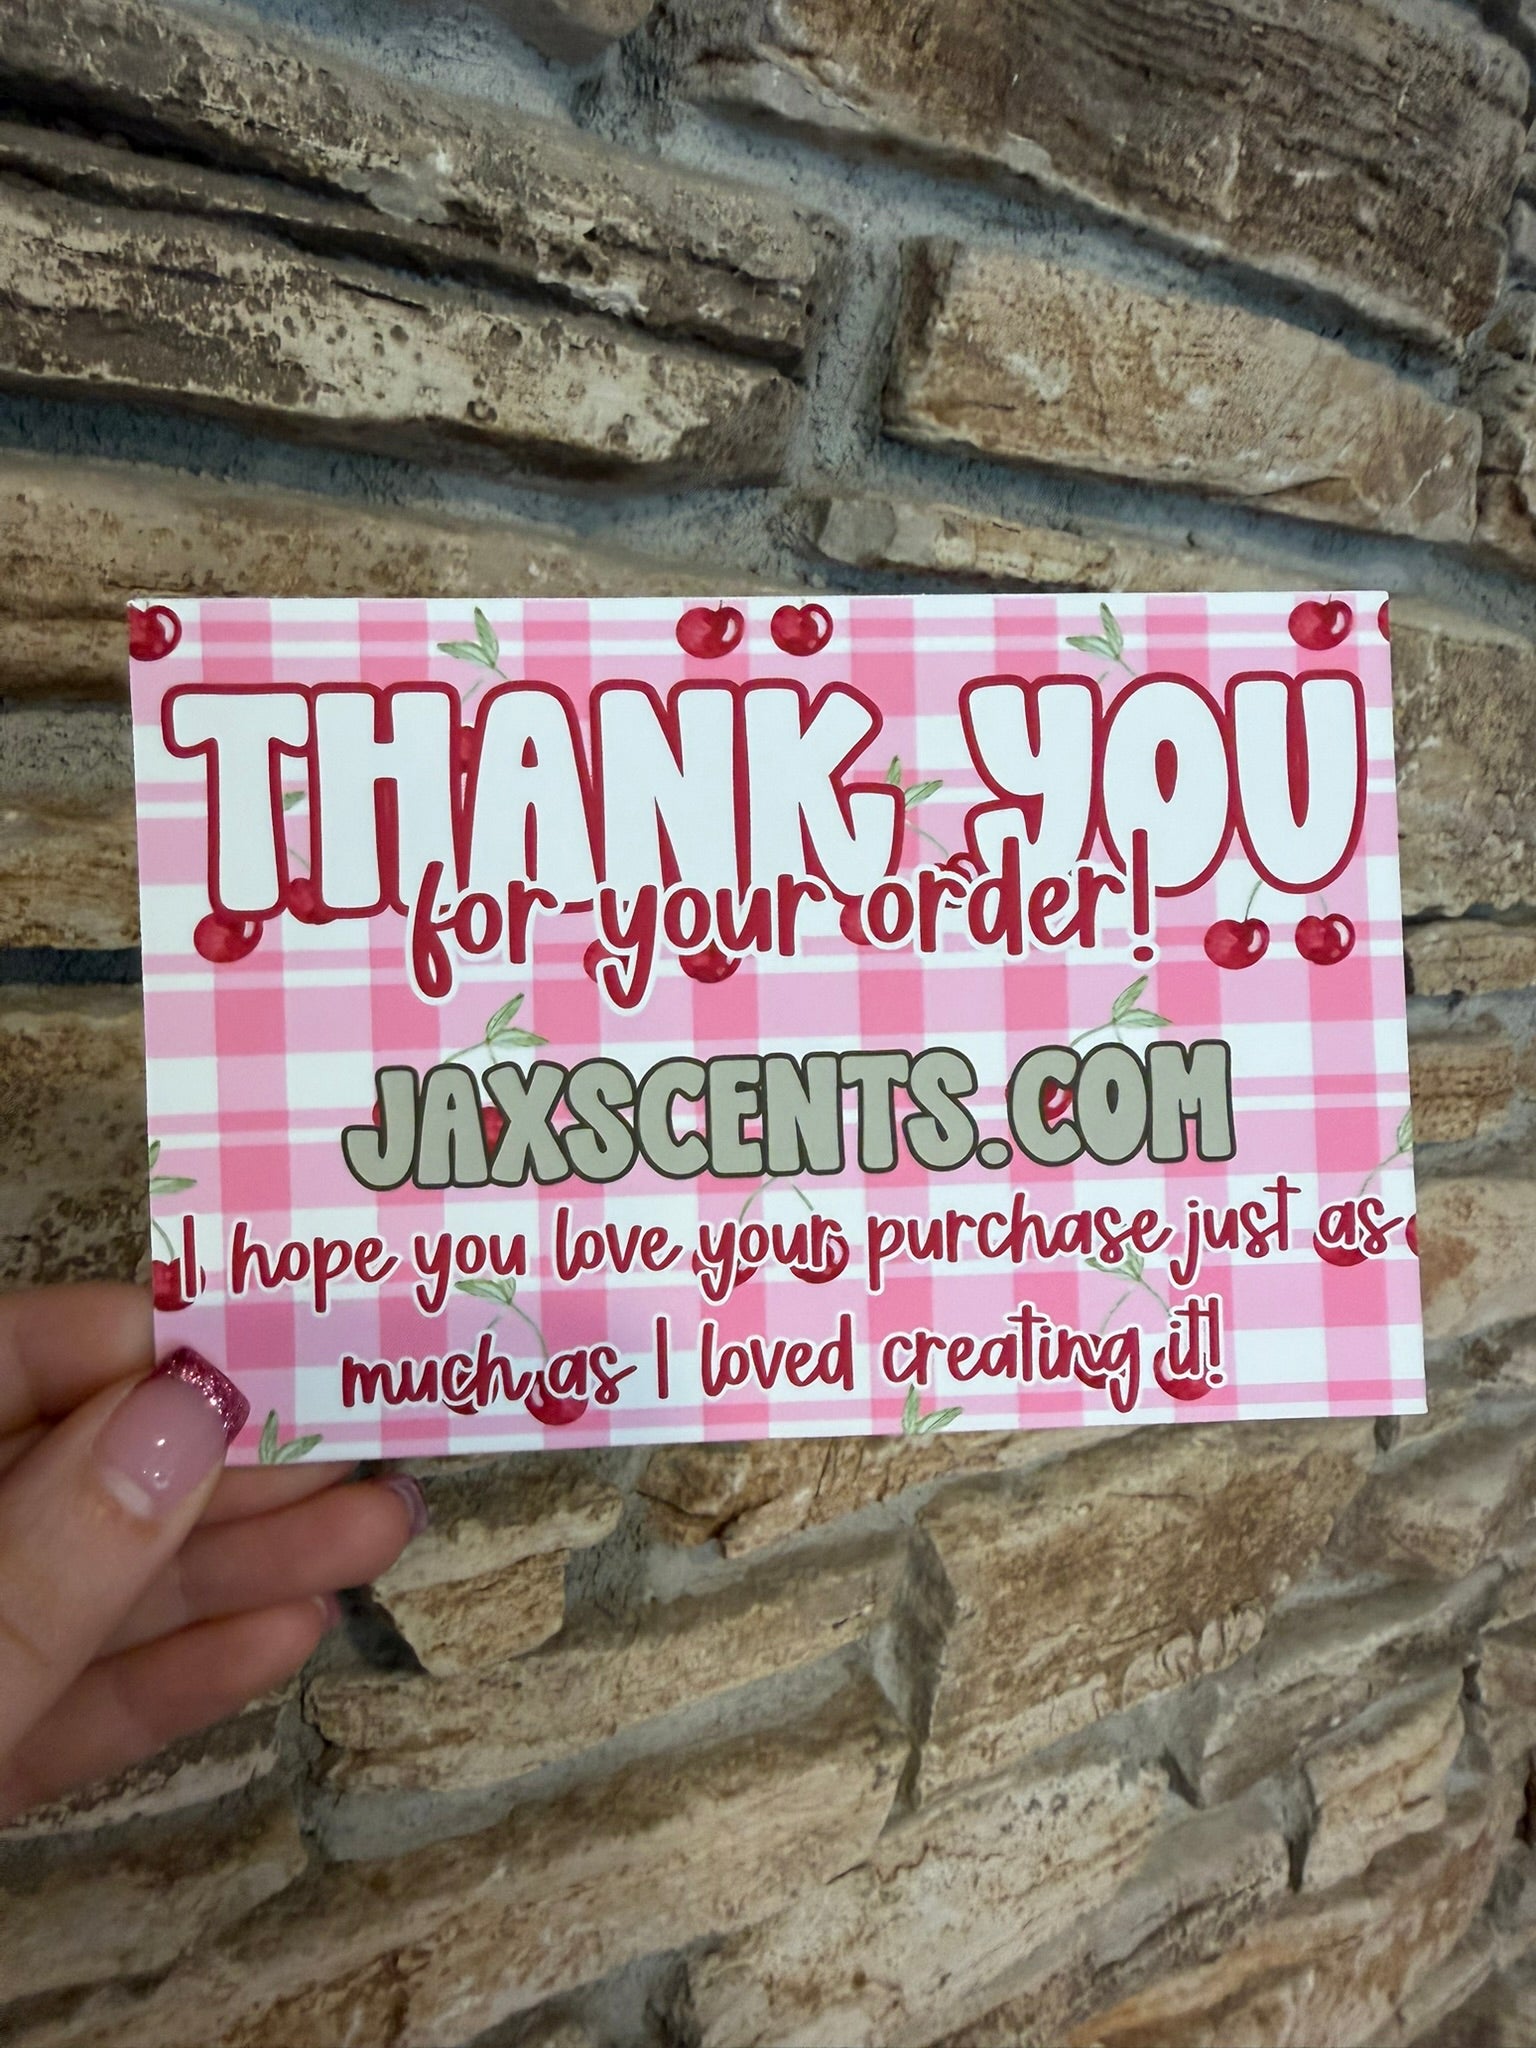 THANK YOU
for your order!
JAXSCENTS.COM
I hope you love your purchase just as
much as I loved creating it!